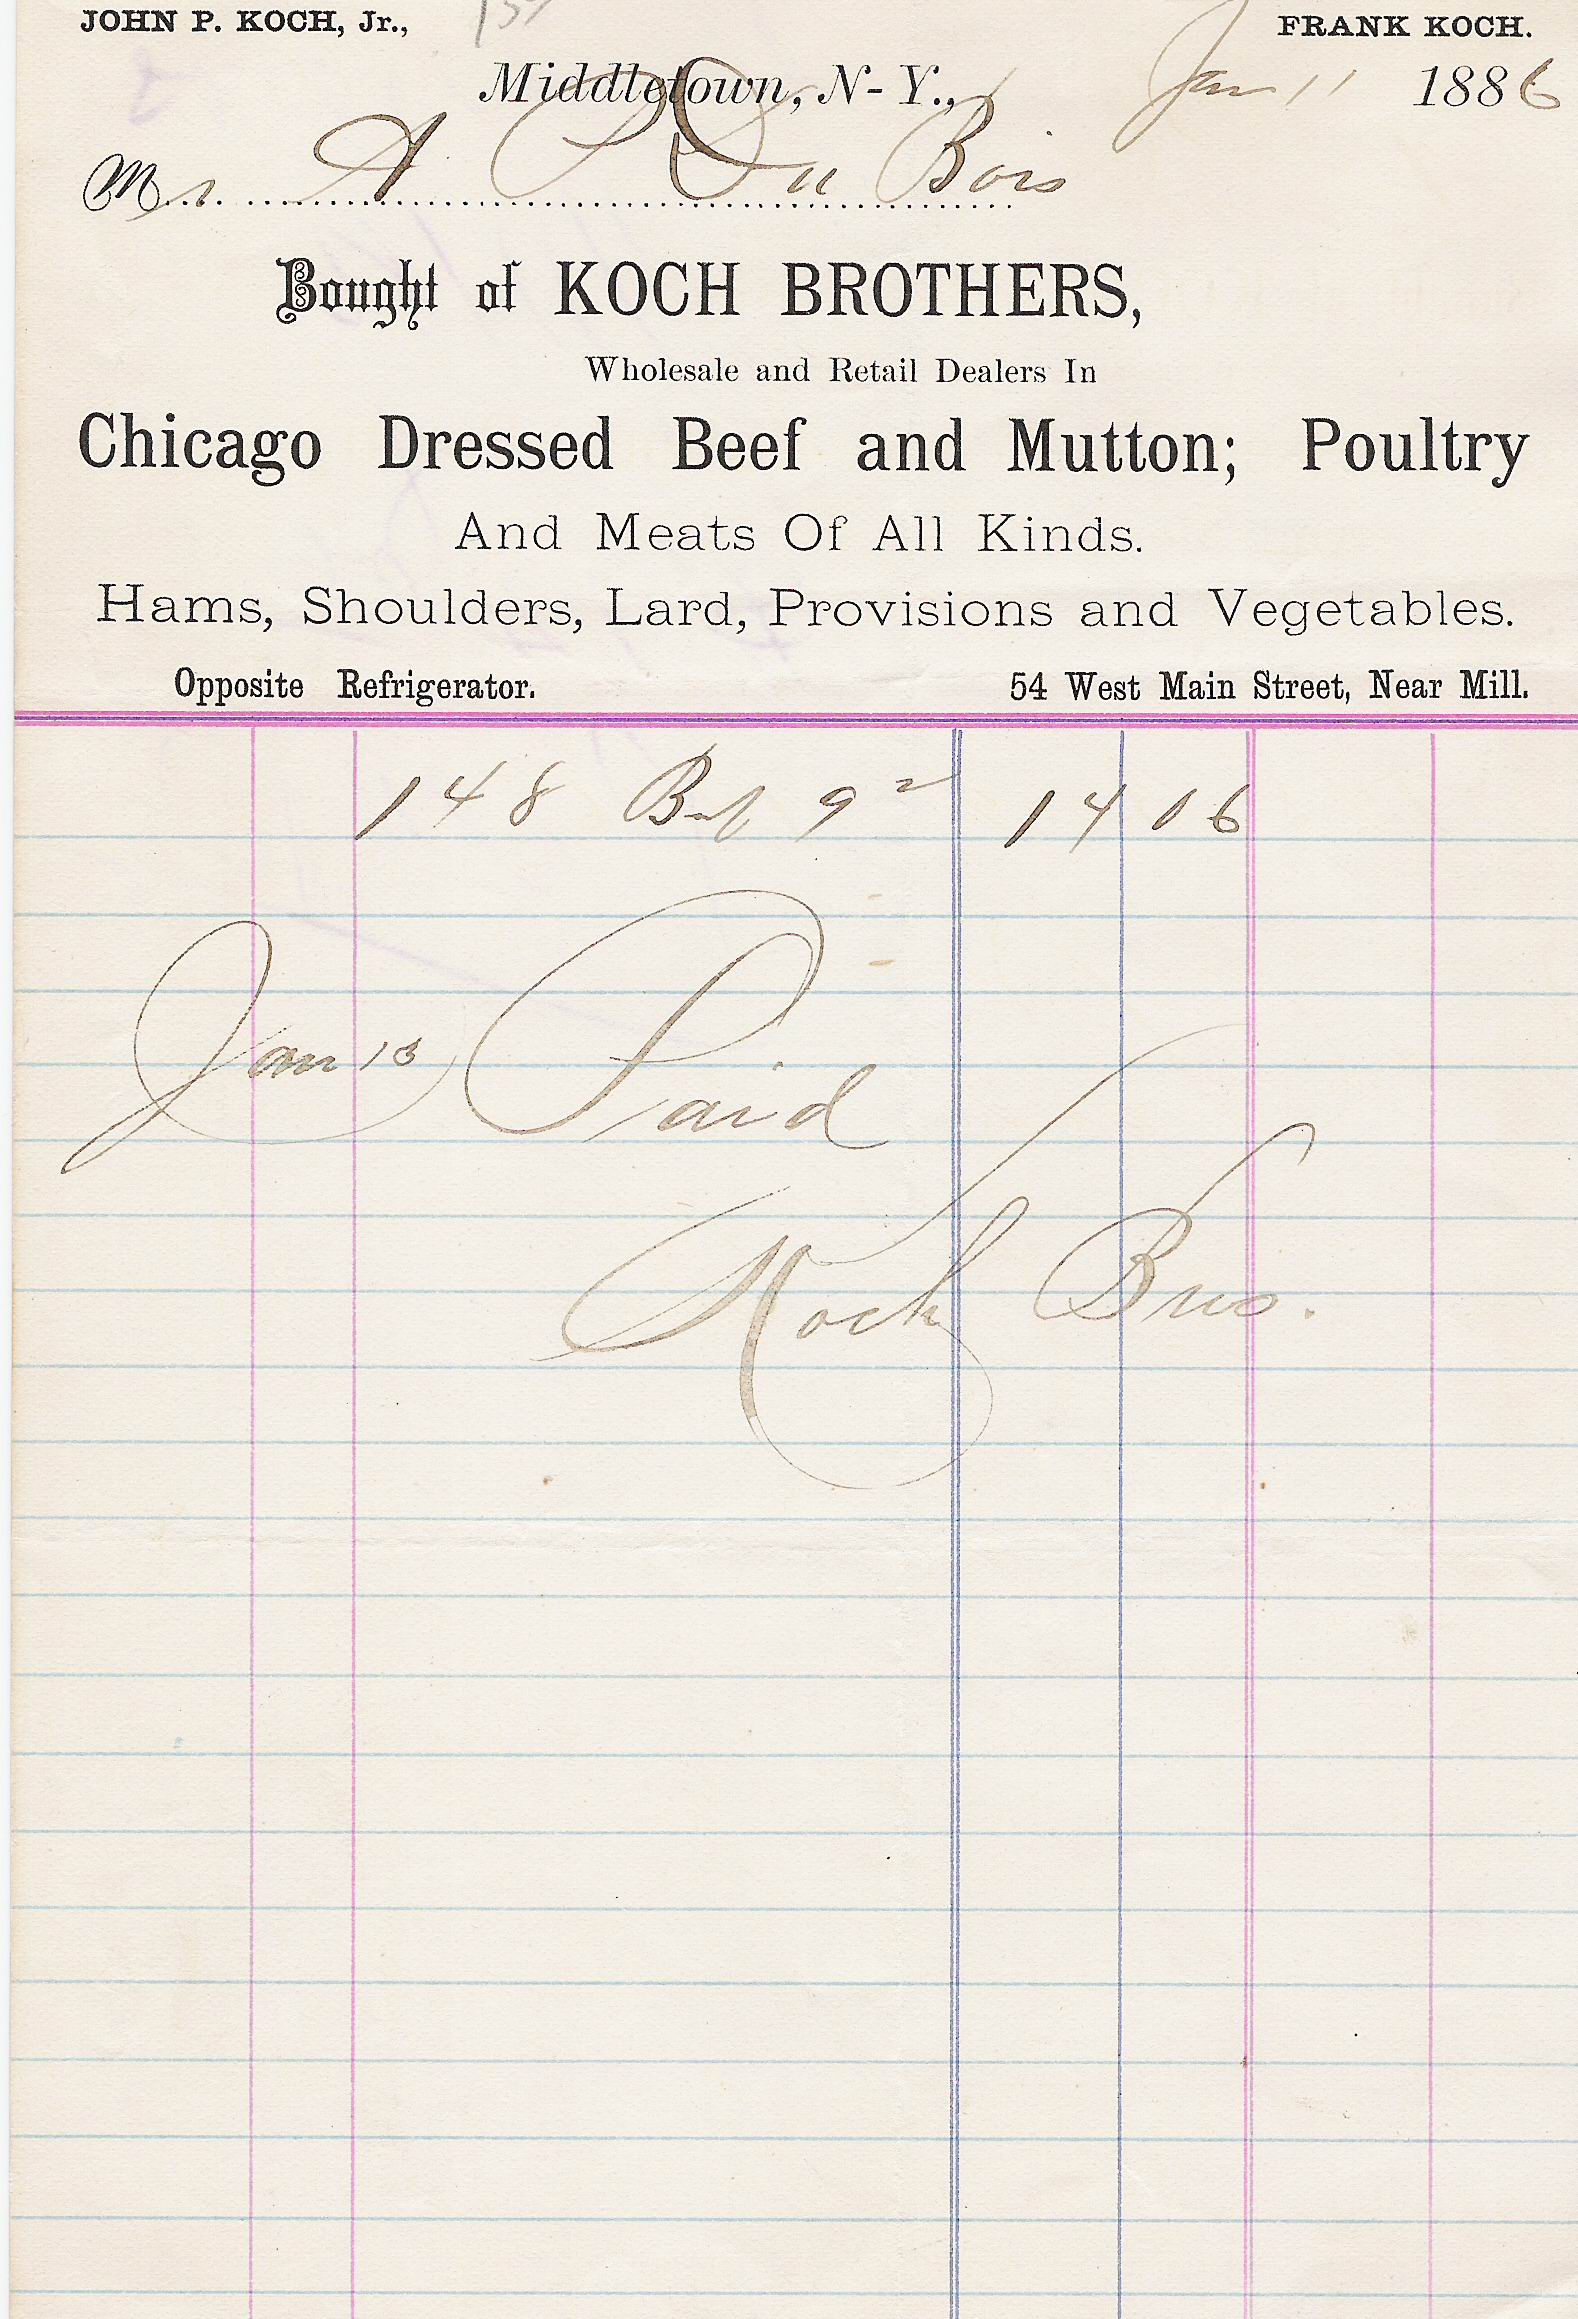 JOHN P. KOCH, Jr., FRANK KOCH.
Middletown, N-Y., Jan 11 1886
Mr. A P Du Bois
Bought of KOCH BROTHERS,
Wholesale and Retail Dealers In
Chicago Dressed Beef and Mutton; Poultry
And Meats Of All Kinds.
Hams, Shoulders, Lard, Provisions and Vegetables.
Opposite Refrigerator. 54 West Main Street, Near Mill.
148 Beef 9 14 06
Jan 13 Paid
Koch Bros.